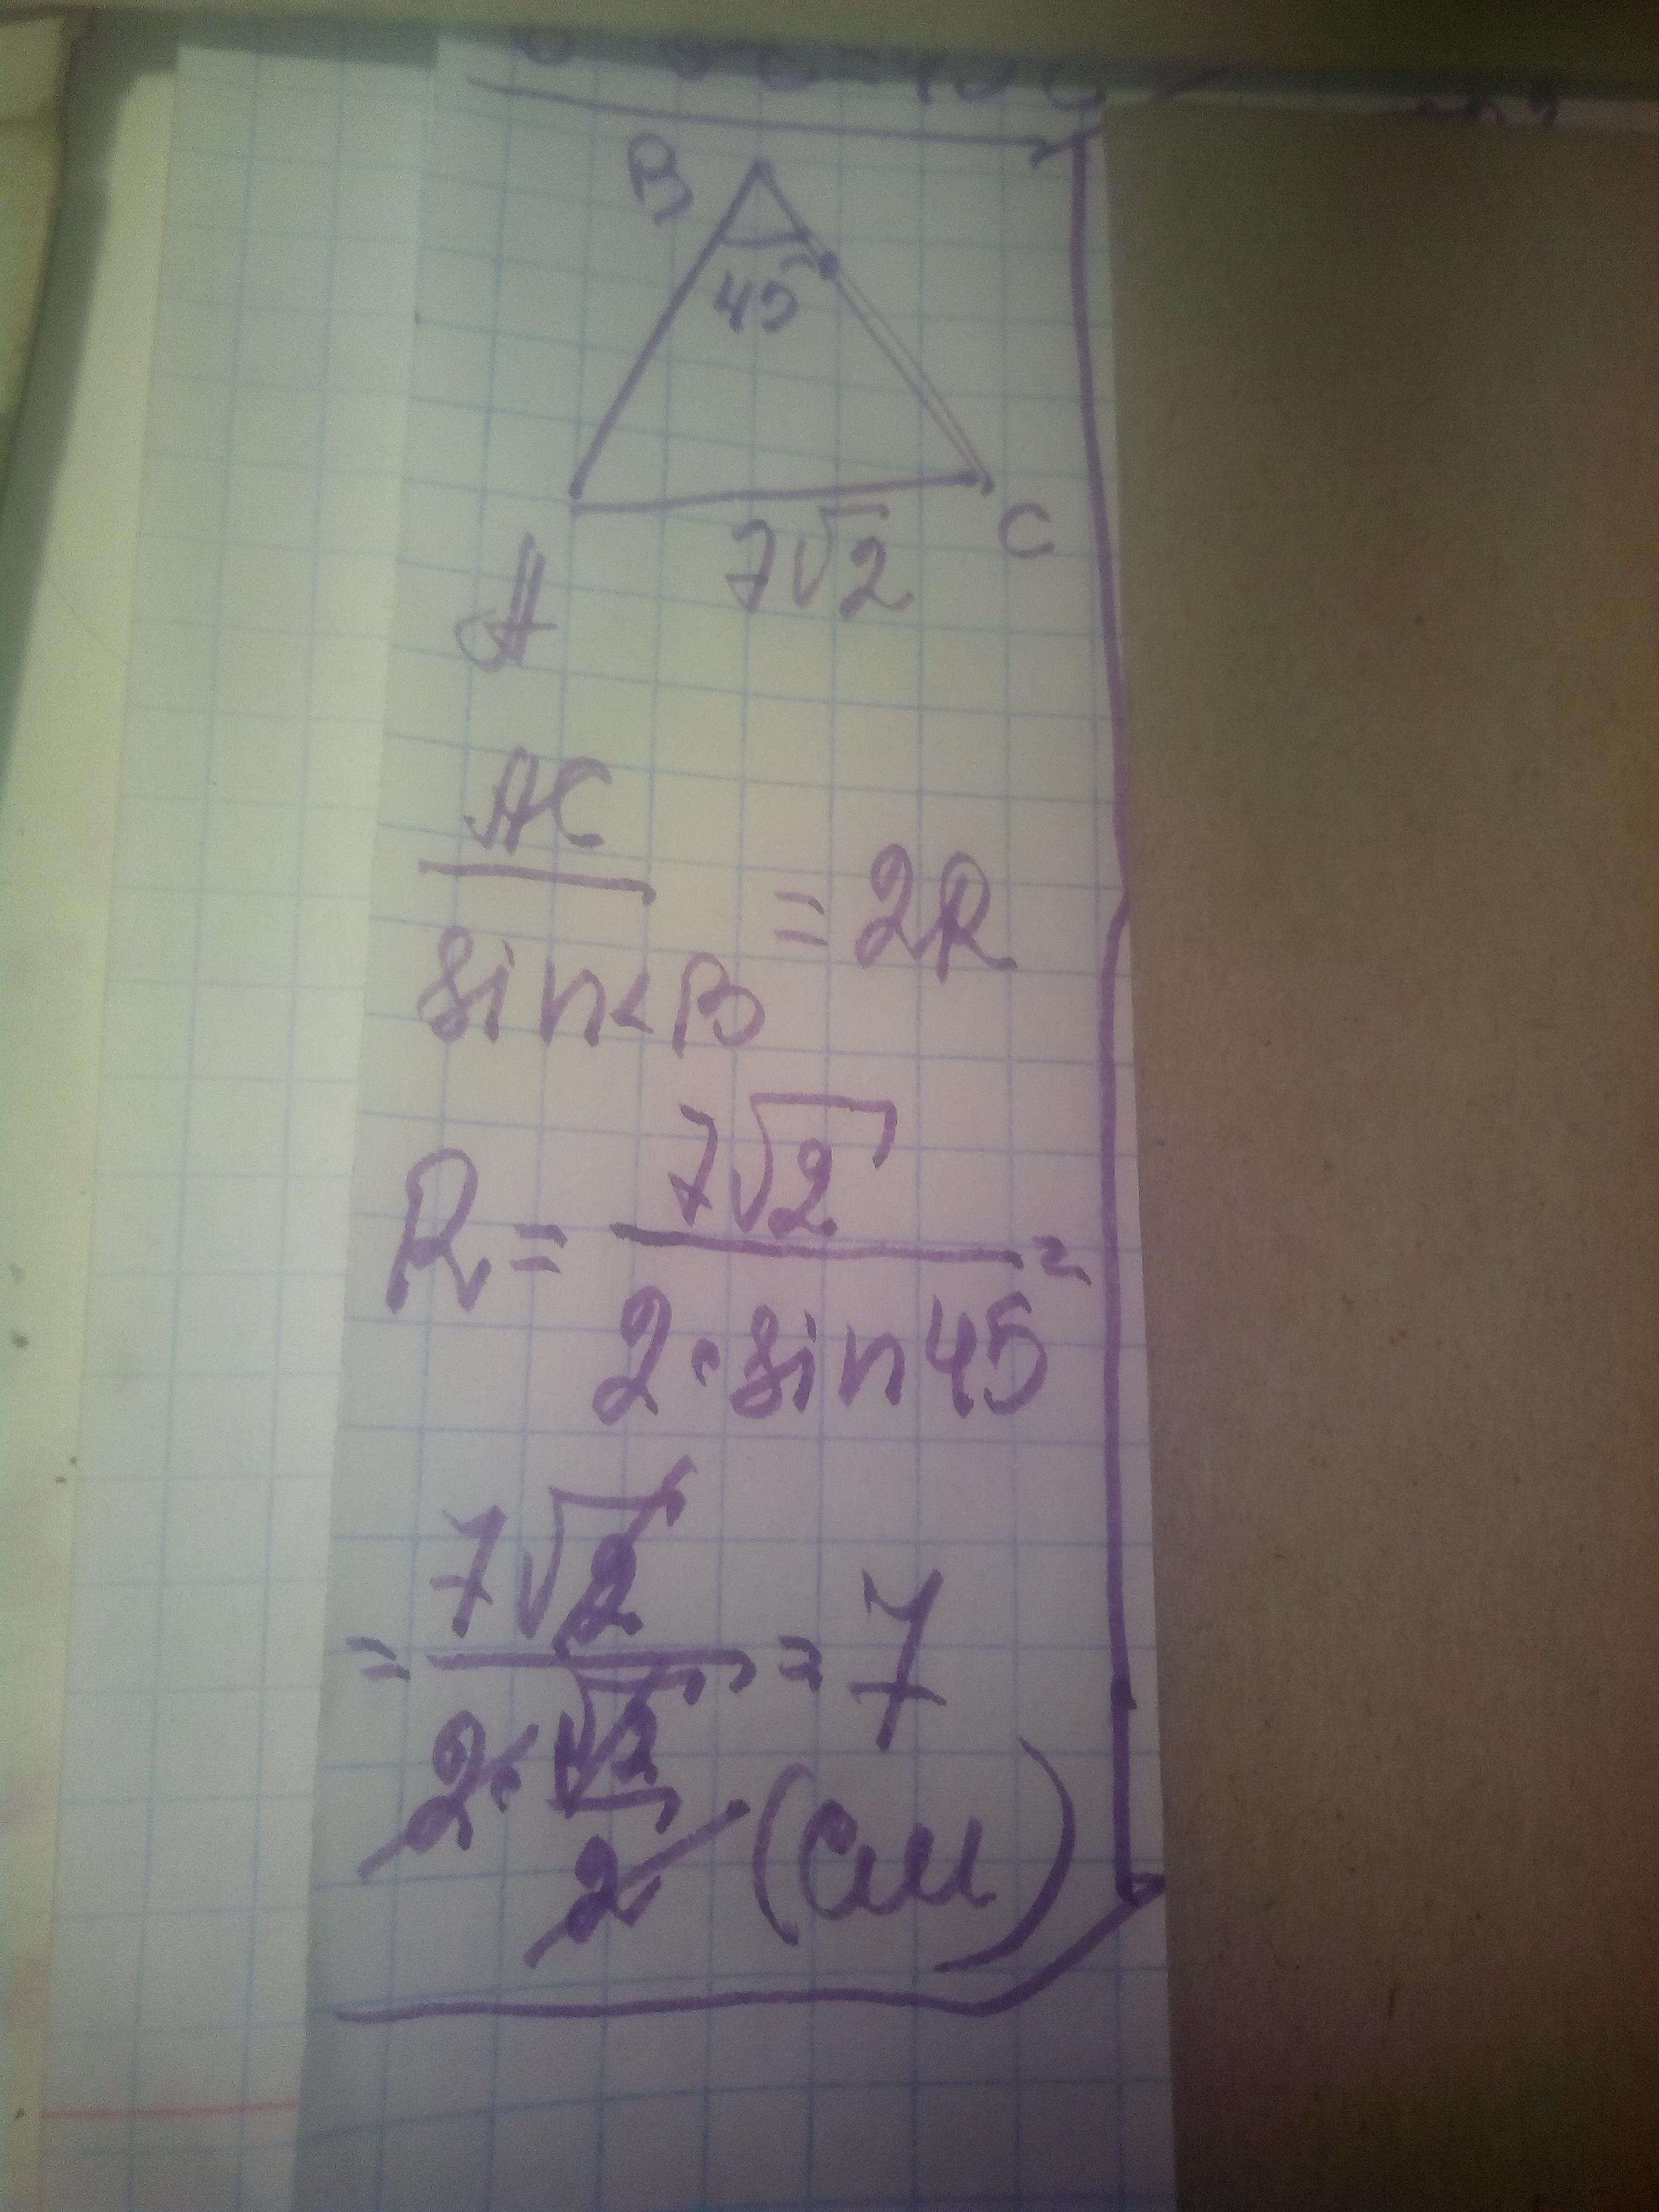 B
45
A
7√2
C
AC
sin<B
=2R
R= 7√2 / 2·sin45 =
= 7√2 / 2·√2/2 = 7
(см)